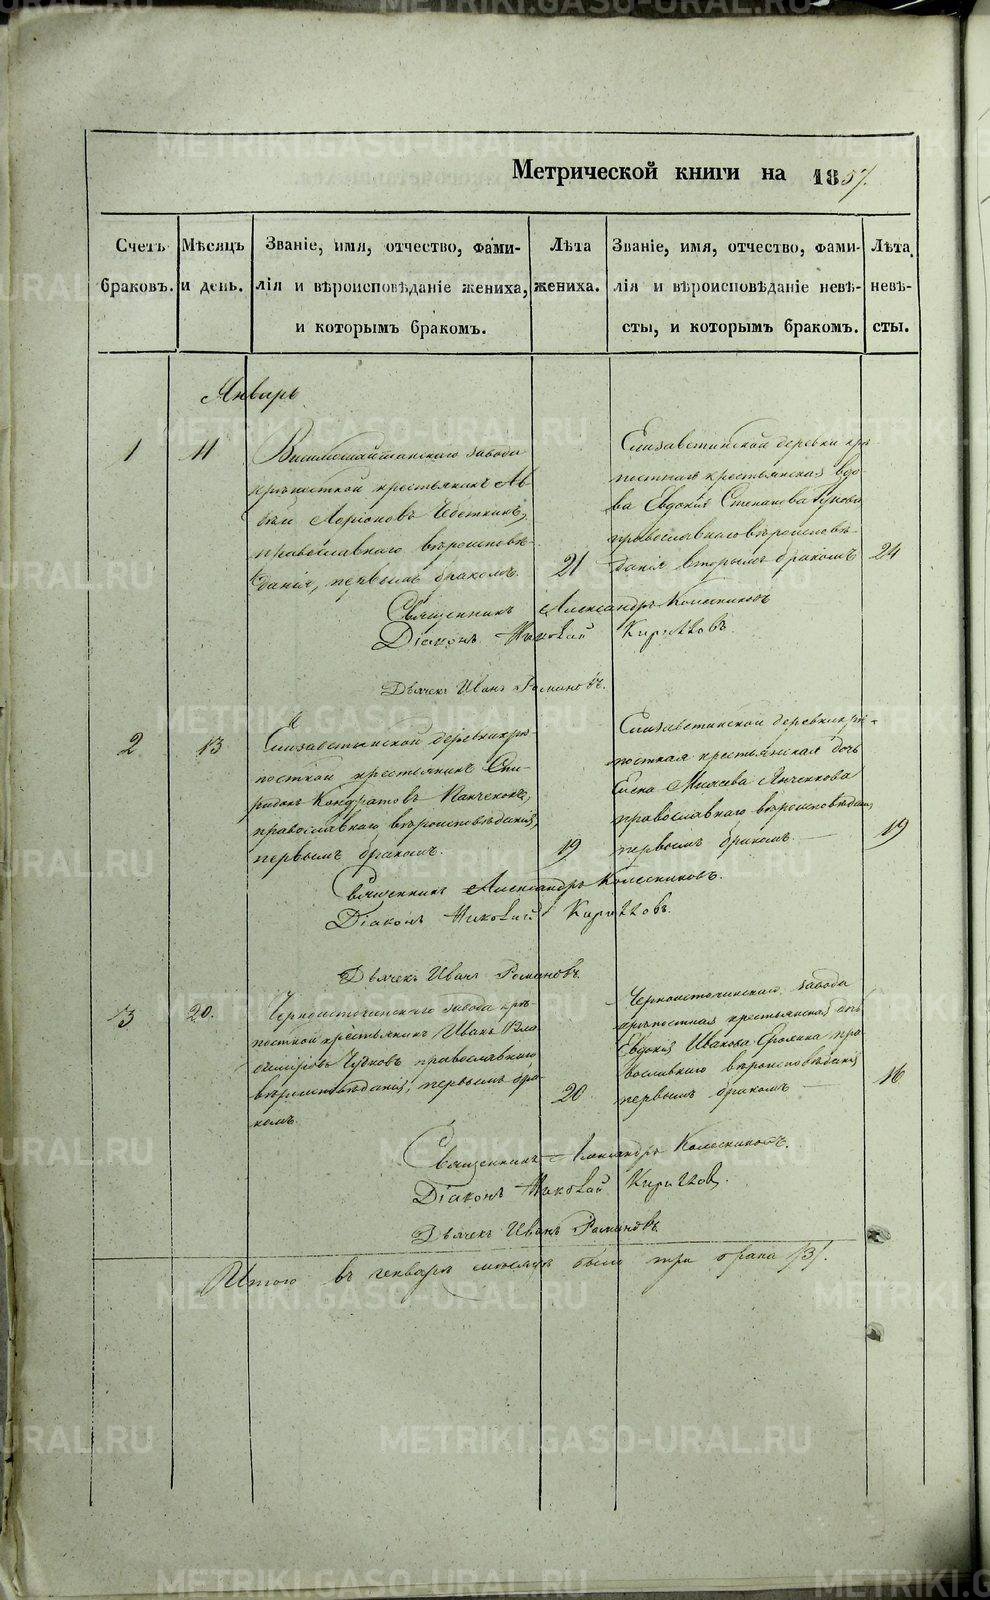 Метрической книги на 1857.
Счетъ браковъ.
Мѣсяцъ и день.
Званіе, имя, отчество, фами-
лія и вѣроисповѣданіе жениха,
и которымъ бракомъ.
Лѣта жениха.
Званіе, имя, отчество, фами-
лія и вѣроисповѣданіе невѣ-
сты, и которымъ бракомъ.
Лѣта невѣ-
сты.
Январь
1
11
Висимошайтанскаго завода
крѣпостной крестьянинъ Ав
дѣй Ларіоновъ
православнаго вѣроисповѣ-
данія, первымъ бракомъ.
21
Елизаветинской деревки крѣ-
постная крестьянская вдо-
ва Евдокія Степанова
православнаго вѣроисповѣ-
данія вторымъ бракомъ
24
Священникъ Александръ Колесниковъ
Діаконъ Николай
Дьячекъ Иванъ Романовъ.
2
13
Елизаветинской деревни крѣ-
постной крестьянинъ Спи-
ридонъ Кондратовъ
православнаго вѣроисповѣданія,
первымъ бракомъ.
19
Елизаветинской деревни крѣ-
постная крестьянская дочь
Елена
православнаго вѣроисповѣданія,
первымъ бракомъ.
19
Священникъ Александръ Колесниковъ.
Діаконъ Николай
Дьячекъ Иванъ Романовъ
3
20.
Черноисточинскаго завода крѣ-
постной крестьянинъ Иванъ Вла
димировъ православнаго
вѣроисповѣданія, первымъ бра-
комъ.
20
Черноисточинскаго завода
крѣпостная крестьянская дочь
Евдокія Иванова пра
вославнаго вѣроисповѣданія
первымъ бракомъ
16
Священникъ Александръ Колесниковъ.
Діаконъ Николай
Дьячекъ Иванъ Романовъ
Итого въ генварѣ мѣсяцѣ было три брака /3/.
METRIKI.GASO-URAL.RU